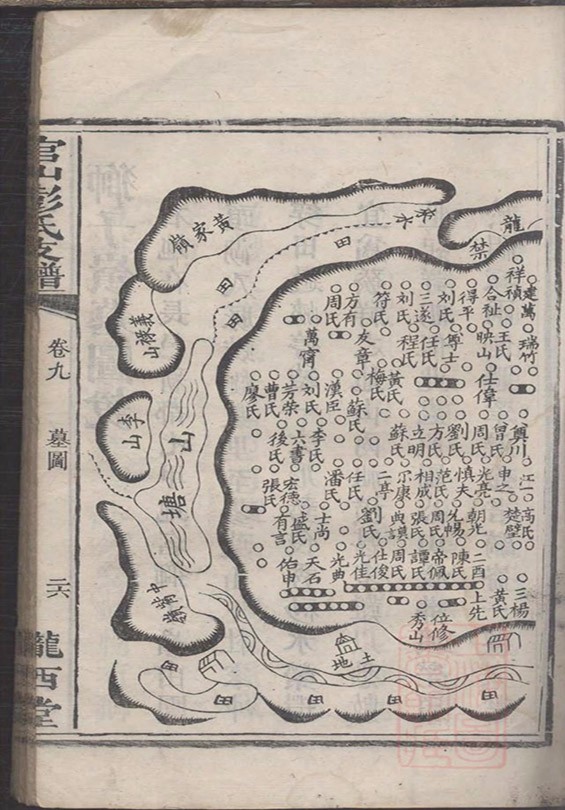 官山彭氏支譜
卷九
墓圖
二六
隴西堂
龍
禁
水
田
黃家嶺
田
田
義禄山
李山
山塘
田
土地
田
田
田
田
建萬
瑞竹
祥禎
合祉
王氏
映山
仕偉
得平
劉氏
尊士
三遂
任氏
劉氏
程氏
符氏
黃氏
梅氏
方有
友章
周氏
蘇氏
漢臣
萬甯
劉氏
李氏
芳荣
六書
曹氏
後氏
廖氏
張氏
宏德
盛氏
有言
佑申
士尚
天石
潘氏
光典
任氏
二亭
劉氏
光佳
仕俊
蘇氏
尔康
典謨
周氏
立明
相成
張氏
譚氏
方氏
范氏
周氏
帝佩
劉氏
慎夫
允暢
陳氏
周氏
光亮
朝光
二酉
上先
曾氏
申之
楚壁
黃氏
江一
高氏
三楊
位修
秀山